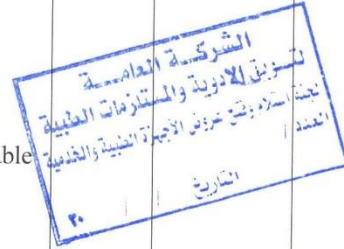 الشركة العامة
لتسويق الادوية والمستلزمات الطبية
لجنة استلام وفتح عروض الاجهزة الطبية والخدمية
العدد / /
able
التاريخ / / ٢٠